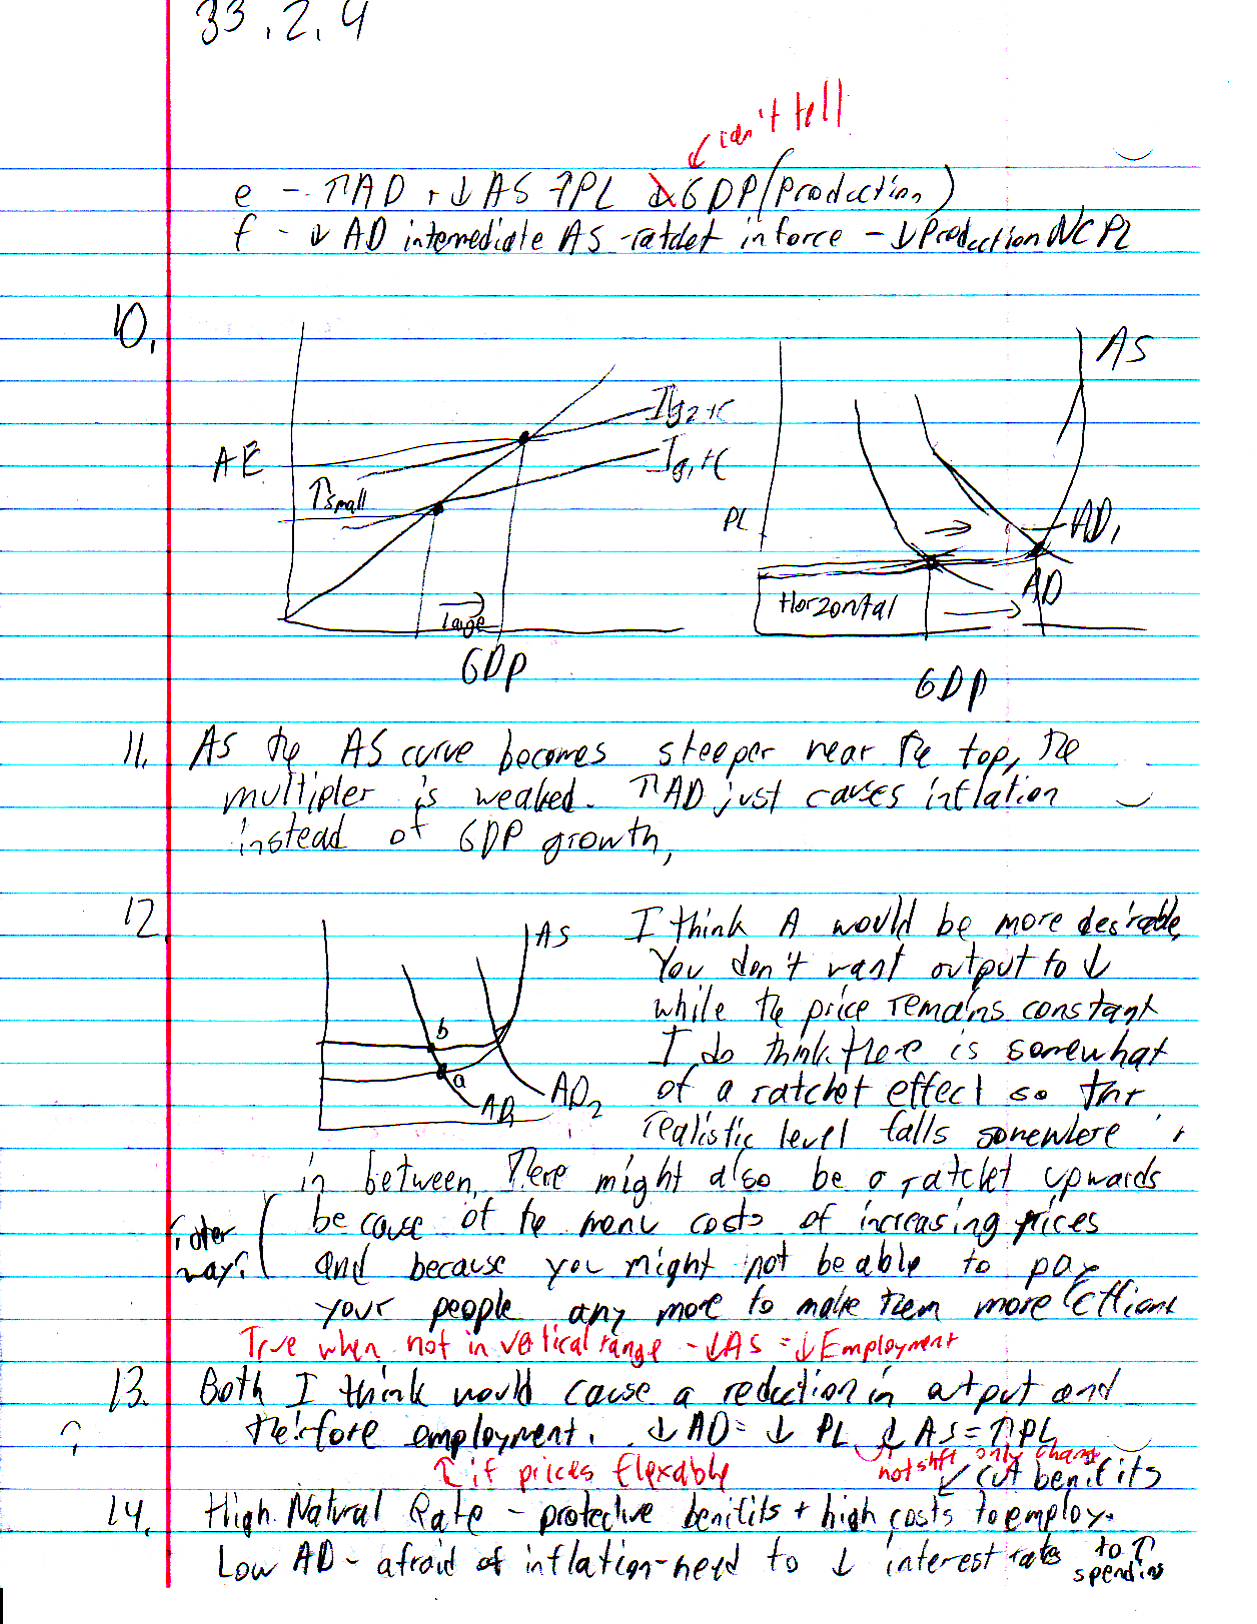 33.2.4
can't tell
e - ↑AD + ↓AS ↑PL GDP (Production)
f - ↓ AD intermediate AS - ratchet in force - ↓ Production NC PL
10.
AS
Ig2+C
AE
Ig1+C
↑small
PL
AD1
AD
Horzontal
Large
GDP
GDP
11. As the AS curve becomes steeper near the top, the
multipler is weaked. ↑AD just causes inflation
instead of GDP growth,
12.
AS
b
a
AD1
AD2
I think A would be more desirable,
You don't want output to ↓
while the price remains constant
I do think there is somewhat
of a ratchet effect so the
realistic level falls somewhere
in between, There might also be a ratchet upwards
because of the menu costs of increasing prices
and because you might not be able to pay
your people any more to make them more efficent
way?
True when not in vertical range - ↓AS = ↓Employment
13. Both I think would cause a reduction in output and
therefore employment. ↓AD = ↓ PL ↓ AS = ↑PL
↑ if prices flexable
not shift only change
↙ cut benifits
14. High Natural Rate - protective benifits + high costs to employ.
Low AD - afraid of inflation - need to ↓ interest rates to ↑
spending